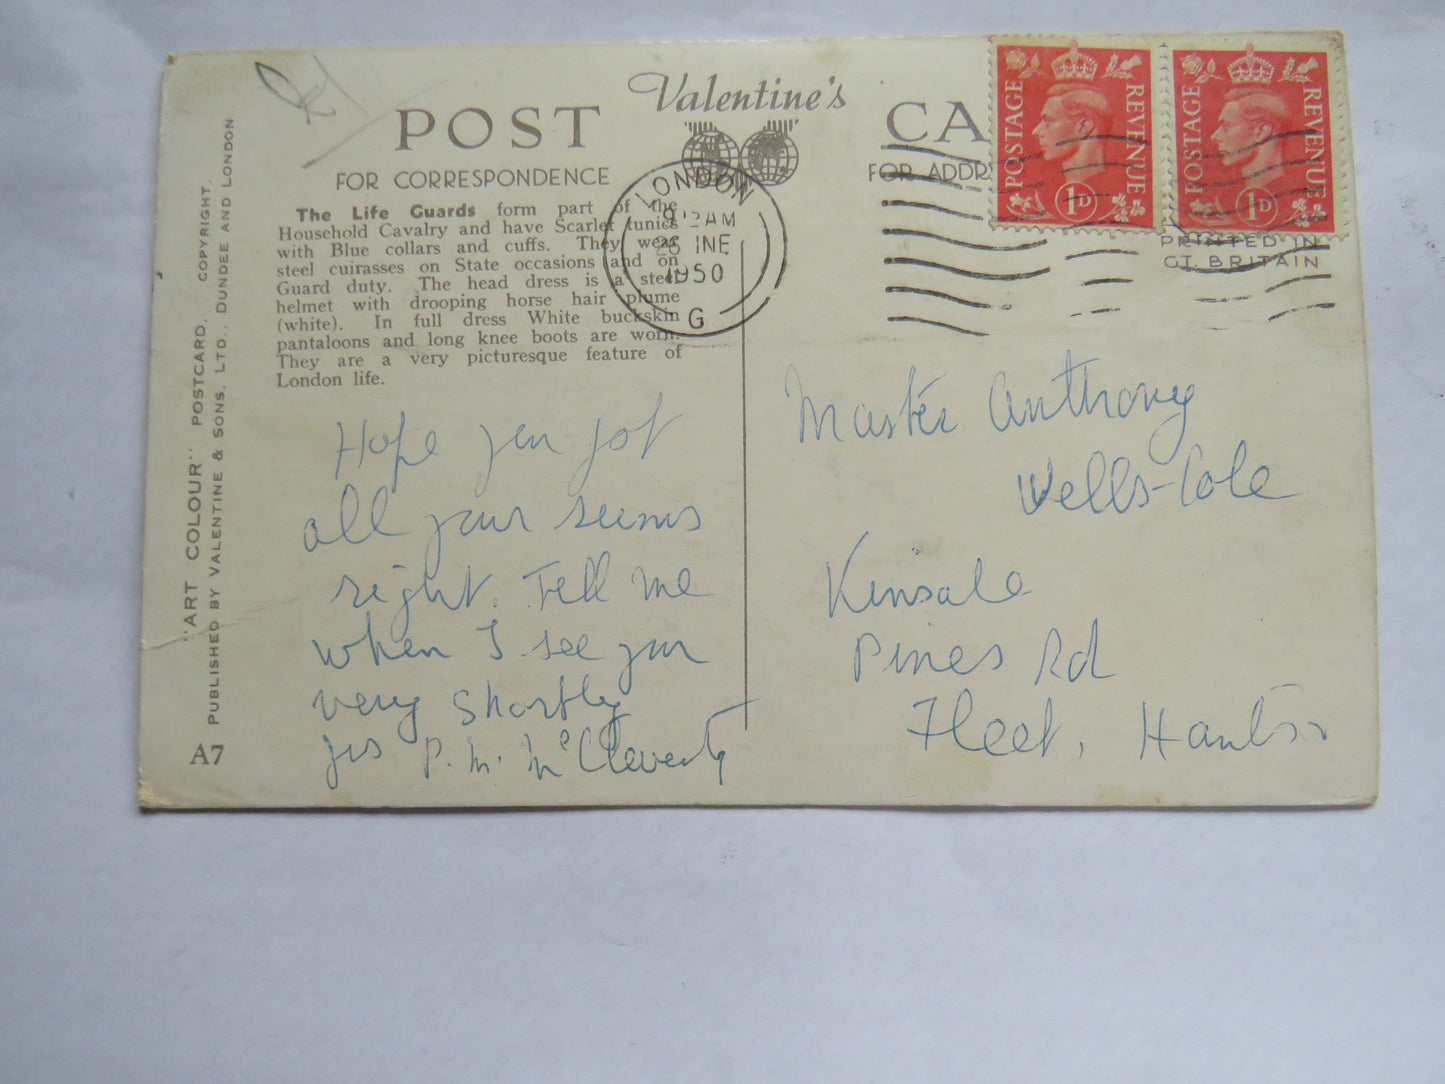 POST
Valentine's
CA
FOR CORRESPONDENCE
FOR ADDR
The Life Guards form part of the
Household Cavalry and have Scarlet tunics
with Blue collars and cuffs. They wear
steel cuirasses on State occasions and on
Guard duty. The head dress is a steel
helmet with drooping horse hair plume
(white). In full dress White buckskin
pantaloons and long knee boots are worn.
They are a very picturesque feature of
London life.
LONDON
AM
1950
G
POSTAGE REVENUE
1D
POSTAGE REVENUE
1D
PRINTED IN
GT. BRITAIN
Hope you got
all your
right. Tell me
when I see you
very shortly
P. M. McCleverty
Master Anthony
Wells-Cole
Kinsale
Pines Rd
Fleet, Hants
"ART COLOUR" POSTCARD. COPYRIGHT.
PUBLISHED BY VALENTINE & SONS, LTD., DUNDEE AND LONDON
A7